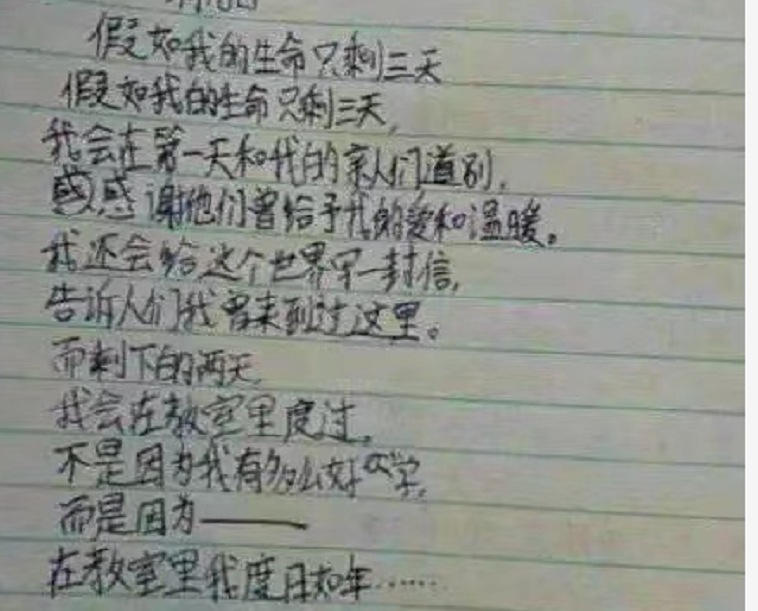 假如我的生命只剩三天
假如我的生命只剩三天,
我会在第一天和我的亲人们道别,
感感谢他们曾给予我的爱和温暖。
我还会给这个世界写一封信,
告诉人们我曾来到过这里。
而剩下的两天
我会在教室里度过。
不是因为我有多么好学,
而是因为——
在教室里我度日如年……